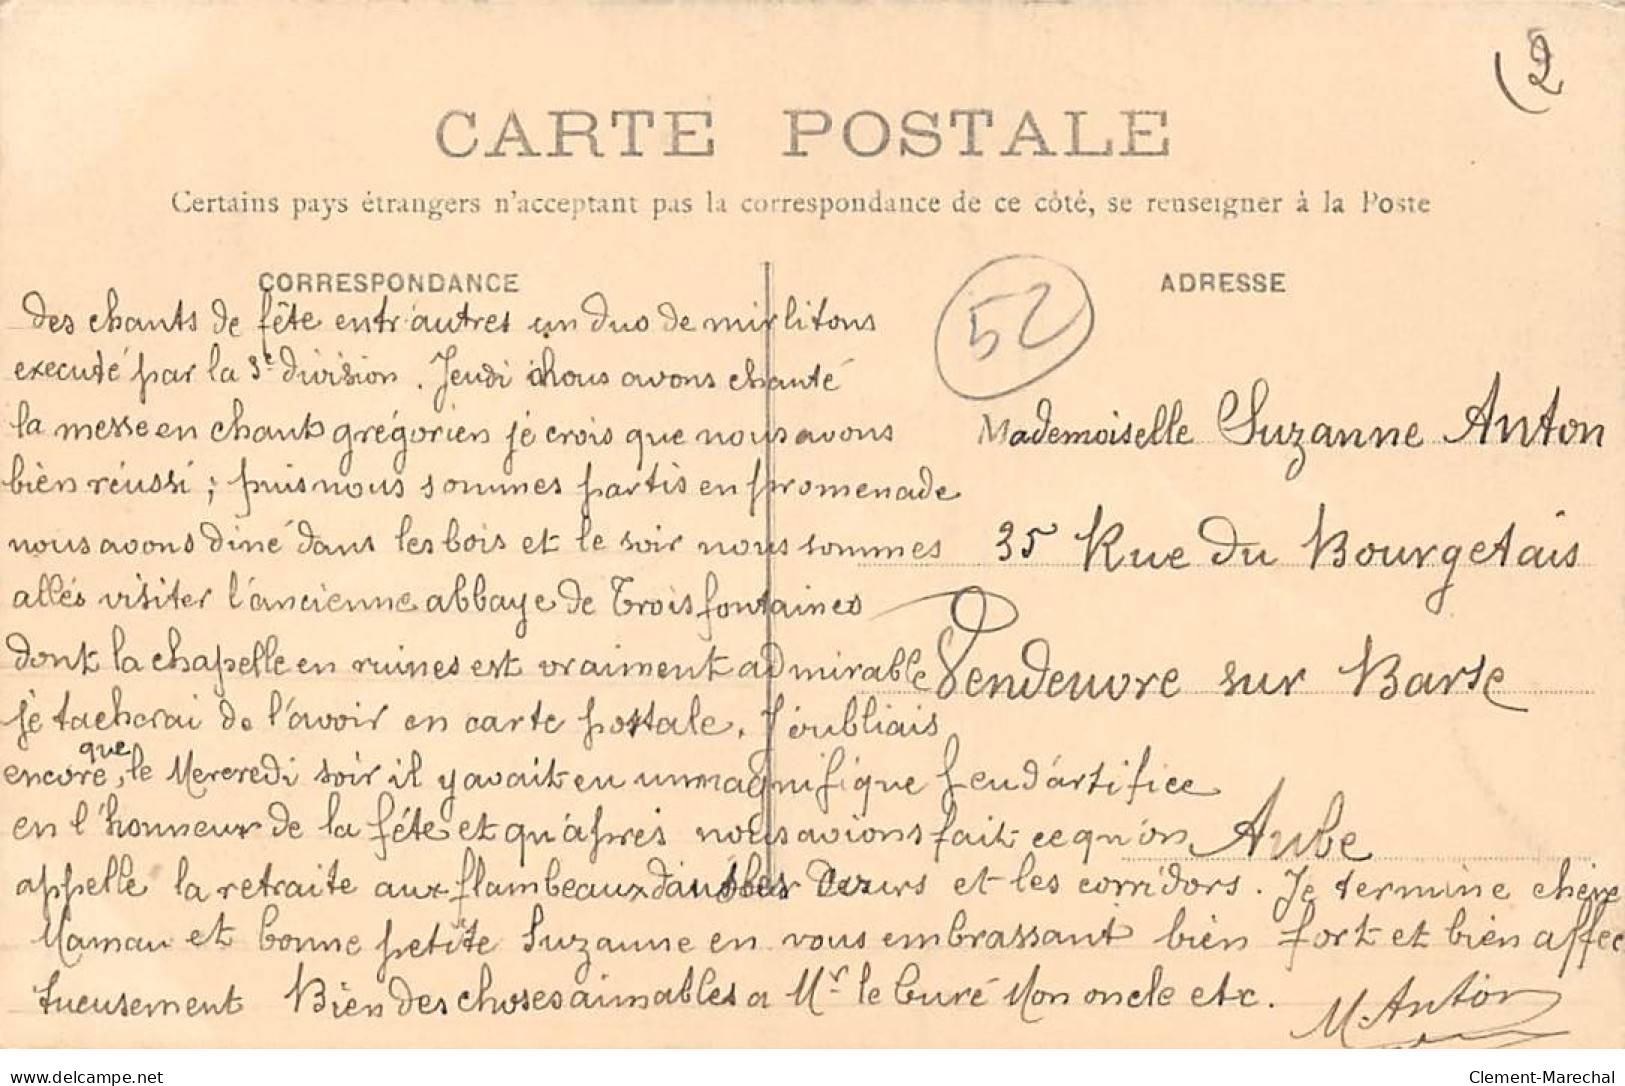 2
CARTE POSTALE
Certains pays étrangers n'acceptant pas la correspondance de ce côté, se renseigner à la Poste
CORRESPONDANCE
des chants de fête entr'autres un duo de mirlitons
executé par la 3e division. Jeudi nous avons chanté
la messe en chant grégorien je crois que nous avons
bien réussi; puis nous sommes partis en promenade
nous avons diné dans les bois et le soir nous sommes
allés visiter l'ancienne abbaye de Trois fontaines
dont la chapelle en ruines est vraiment admirable
je tacherai de l'avoir en carte postale. J'oubliais
encore que le Mercredi soir il y avait eu un magnifique feu d'artifice
en l'honneur de la fête et qu'après nous avions fait ce qu'on
appelle la retraite aux flambeaux dans les cours et les corridors. Je termine chère
Maman et bonne petite Suzanne en vous embrassant bien fort et bien affec
tueusement Bien des choses aimables a Mr le Curé Mon oncle etc.
M. Anton
ADRESSE
52
Mademoiselle Suzanne Anton
35 Rue du Bourgetais
Vendeuvre sur Barse
Aube
delcampe.net
Clement-Marechal